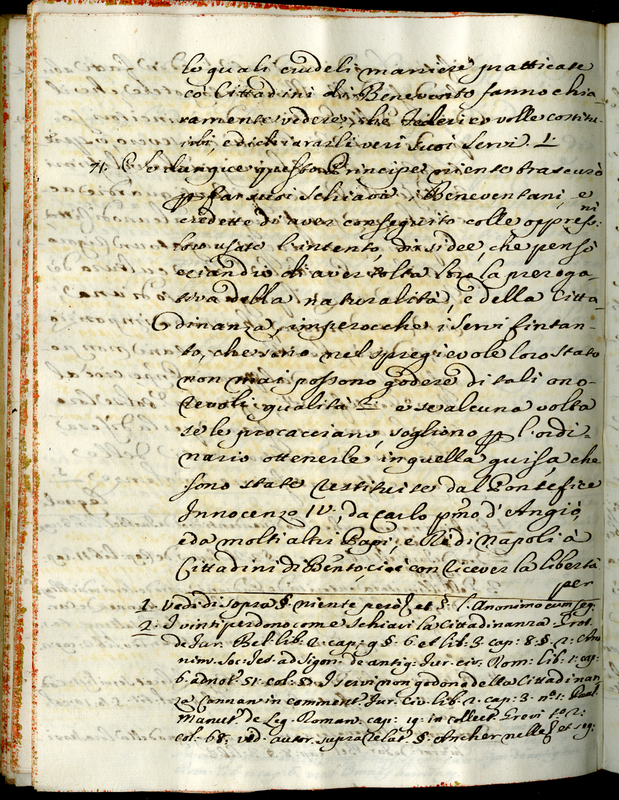 le quali crudeli maniere pratticate
co' Cittadini di Benevento fanno chia
ramente vedere, che Federico volle costitu
irli, e dichiararli veri suoi servi. 1
41. E se dunque questo Principe niente trascurò
p far suoi schiavi i Beneventani, e
credette di aver conseguito colle oppressioni
loro usate l'intento, di sidee, che pensò
eziandio di aver tolta loro la preroga-
tiva della naturalità, e della Citta
dinanza, imperocche i servi fintan-
to, che sono nel spregievole loro stato
non mai possono godere di tali ono-
revoli qualità 2. e se alcuna volta
se le procacciano, sogliono p l'ordi-
nario ottenerle in quella guisa, che
sono state restituite dal Pontefice
Innocenzo IV, da Carlo pmo d'Angiò,
e da molti altri Papi, e Rè di Napoli a
Cittadini di Bento, cioè con ricever la libertà
per
1. Vedi di sopra §. niente però et §. l'Anonimo cum seq.
2. I vinti perdono come schiavi la Cittadinanza Grot.
de Jur. Bel. lib. 2. cap. 9 §. 6. et lib. 3. cap. 8. §. 2. Ano
nim. Soc. Jes. ad Sigon. de antiq. Jur. civ. Rom. lib. 1. cap.
6. adnot. 51. col. 80. I servi non godono della Cittadinan
za Connan. in comment. Jur. Civ. lib. 2. cap. 3. n. 1.
Manut. de Leg. Roman. cap. 19. in collect. Grevi to. 2.
col. 68. ved. autor. supra relat. §. Ancher nelle et seq.